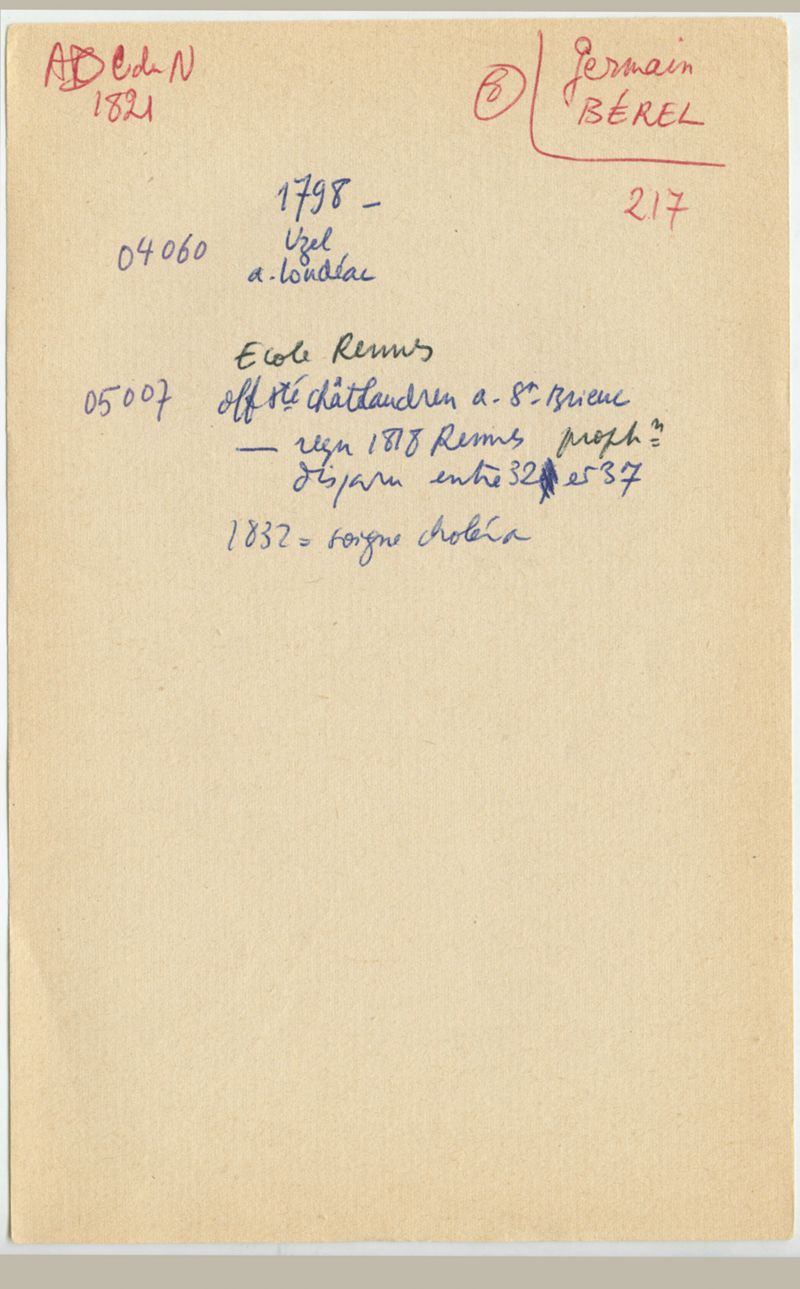 AD C du N
1821
8
Germain
BÉREL
217
1798 -
04060
Uzel
a. Loudéac
Ecole Rennes
05007 off sté châtlaudren a. St Brieuc
— reçu 1818 Rennes
disparu entre 32 et 37
1832 = soigne choléra